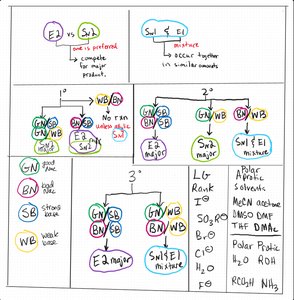 E2 vs SN2
one is preferred
↳ compete for major product.
SN1 & E1
mixture
↳ occur together in similar amounts
1°
WB BN
No rxn
unless allylic
SN1
GN SB
GN WB
BN SB
E2
SN2
E2
2°
GN SB
BN SB
E2 major
GN WB
SN2 major
BN WB
SN1 & E1 mixture
GN good nuc
BN bad nuc
SB strong base
WB weak base
3°
GN SB
BN SB
E2 major
GN WB
BN WB
SN1 & E1 mixture
LG Rank
I⊖
SO3R⊖
Br⊖
Cl⊖
H2O
F⊖
Polar Aprotic Solvents
MeCN acetone
DMSO DMF
THF DMAc
Polar Protic
H2O ROH
RCO2H NH3